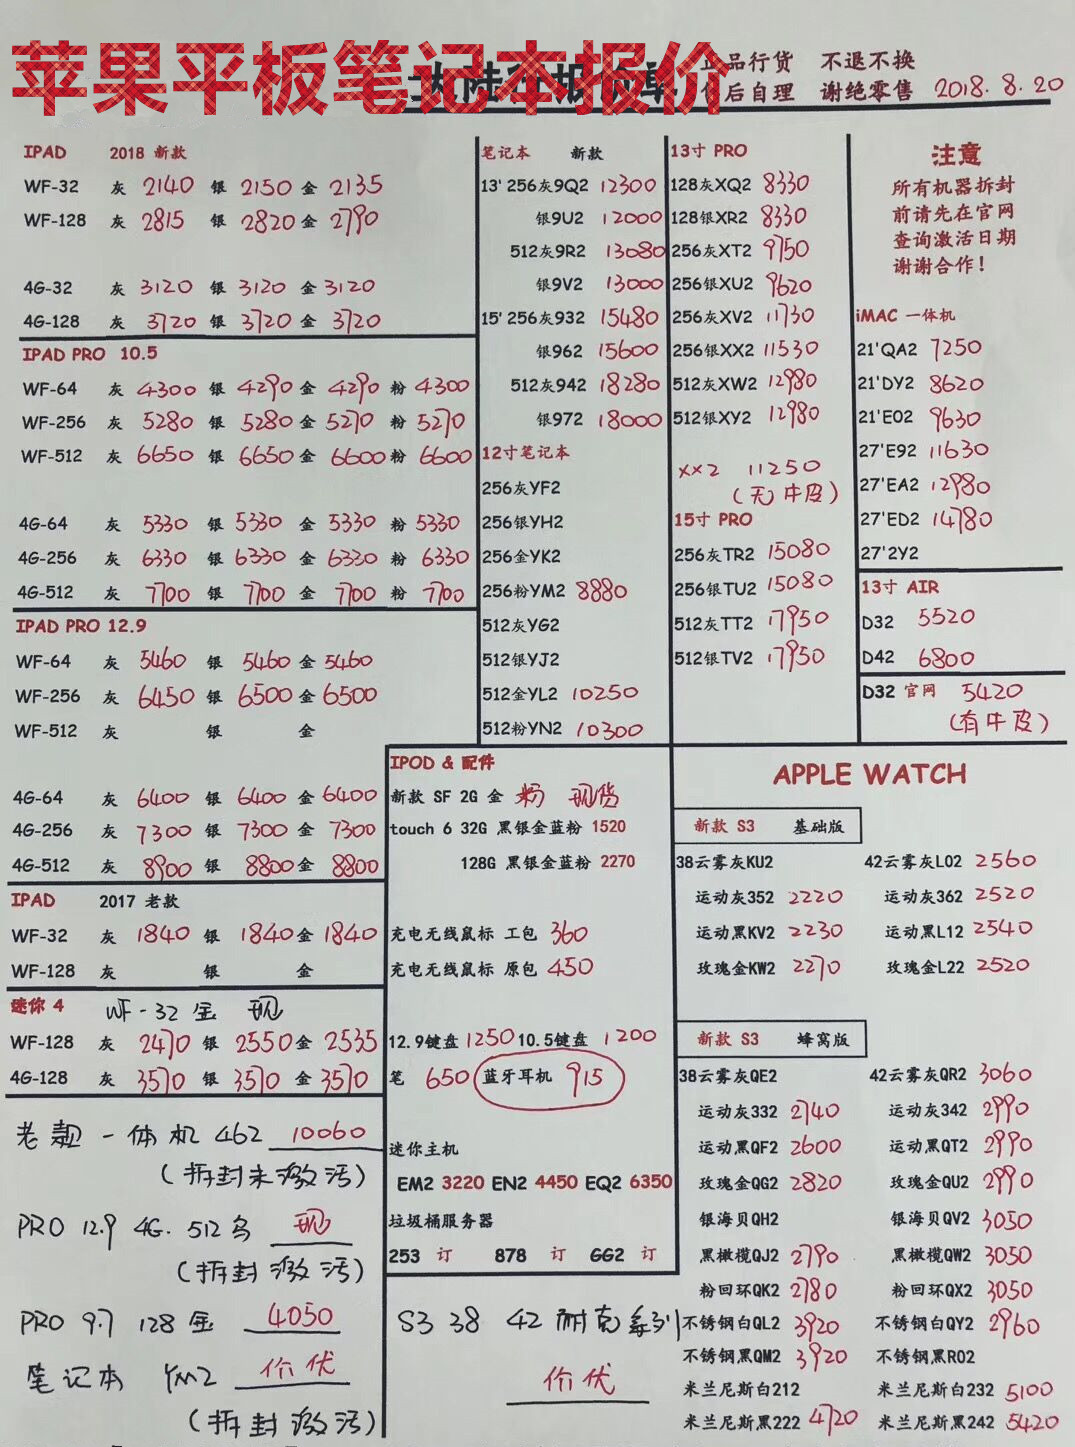 苹果平板笔记本报价
正品行货 不退不换
售后自理 谢绝零售 2018.8.20
IPAD 2018 新款
WF-32 灰 2140 银 2150 金 2135
WF-128 灰 2815 银 2820 金 2790
4G-32 灰 3120 银 3120 金 3120
4G-128 灰 3720 银 3720 金 3720
IPAD PRO 10.5
WF-64 灰 4300 银 4290 金 4290 粉 4300
WF-256 灰 5280 银 5280 金 5270 粉 5270
WF-512 灰 6650 银 6650 金 6600 粉 6600
4G-64 灰 5330 银 5330 金 5330 粉 5330
4G-256 灰 6330 银 6330 金 6330 粉 6330
4G-512 灰 7700 银 7700 金 7700 粉 7700
IPAD PRO 12.9
WF-64 灰 5460 银 5460 金 5460
WF-256 灰 6450 银 6500 金 6500
WF-512 灰 银 金
4G-64 灰 6400 银 6400 金 6400
4G-256 灰 7300 银 7300 金 7300
4G-512 灰 8900 银 8800 金 8800
IPAD 2017 老款
WF-32 灰 1840 银 1840 金 1840
WF-128 灰 银 金
迷你 4 WF-32 金 现
WF-128 灰 2470 银 2550 金 2535
4G-128 灰 3570 银 3570 金 3570
老款一体机 462 10060
(拆封未激活)
PRO 12.9 4G. 512 现
(拆封激活)
PRO 9.7 128 金 4050
笔记本 YM2 价优
(拆封激活)
笔记本 新款
13' 256灰9Q2 12300
银9U2 12000
512灰9R2 13080
银9V2 13000
15' 256灰932 15480
银962 15600
512灰942 18280
银972 18000
12寸笔记本
256灰YF2
256银YH2
256金YK2
256粉YM2 8880
512灰YG2
512银YJ2
512金YL2 10250
512粉YN2 10300
13寸 PRO
128灰XQ2 8330
128银XR2 8330
256灰XT2 9750
256银XU2 9620
256灰XV2 11730
256银XX2 11530
512灰XW2 12980
512银XY2 12980
XX2 11250
(无牛皮)
15寸 PRO
256灰TR2 15080
256银TU2 15080
512灰TT2 17950
512银TV2 17950
注意
所有机器拆封
前请先在官网
查询激活日期
谢谢合作!
iMAC 一体机
21'QA2 7250
21'DY2 8620
21'E02 9630
27'E92 11630
27'EA2 12980
27'ED2 14780
27'2Y2
13寸 AIR
D32 5520
D42 6800
D32 官网 5420
(有牛皮)
IPOD & 配件
新款 SF 2G 金 粉 现货
touch 6 32G 黑银金蓝粉 1520
128G 黑银金蓝粉 2270
充电无线鼠标 工包 360
充电无线鼠标 原包 450
12.9键盘 1250 10.5键盘 1200
笔 650 蓝牙耳机 915
迷你主机
EM2 3220 EN2 4450 EQ2 6350
垃圾桶服务器
253 订 878 订 GG2 订
S3 38 42 耐克系列
价优
APPLE WATCH
新款 S3 基础版
38云雾灰KU2 42云雾灰L02 2560
运动灰352 2220 运动灰362 2520
运动黑KV2 2230 运动黑L12 2540
玫瑰金KW2 2270 玫瑰金L22 2520
新款 S3 蜂窝版
38云雾灰QE2 42云雾灰QR2 3060
运动灰332 2740 运动灰342 2990
运动黑QF2 2600 运动黑QT2 2990
玫瑰金QG2 2820 玫瑰金QU2 2990
银海贝QH2 银海贝QV2 3050
黑橄榄QJ2 2790 黑橄榄QW2 3050
粉回环QK2 2780 粉回环QX2 3050
不锈钢白QL2 3920 不锈钢白QY2 2960
不锈钢黑QM2 3920 不锈钢黑R02
米兰尼斯白212 米兰尼斯白232 5100
米兰尼斯黑222 4720 米兰尼斯黑242 5420